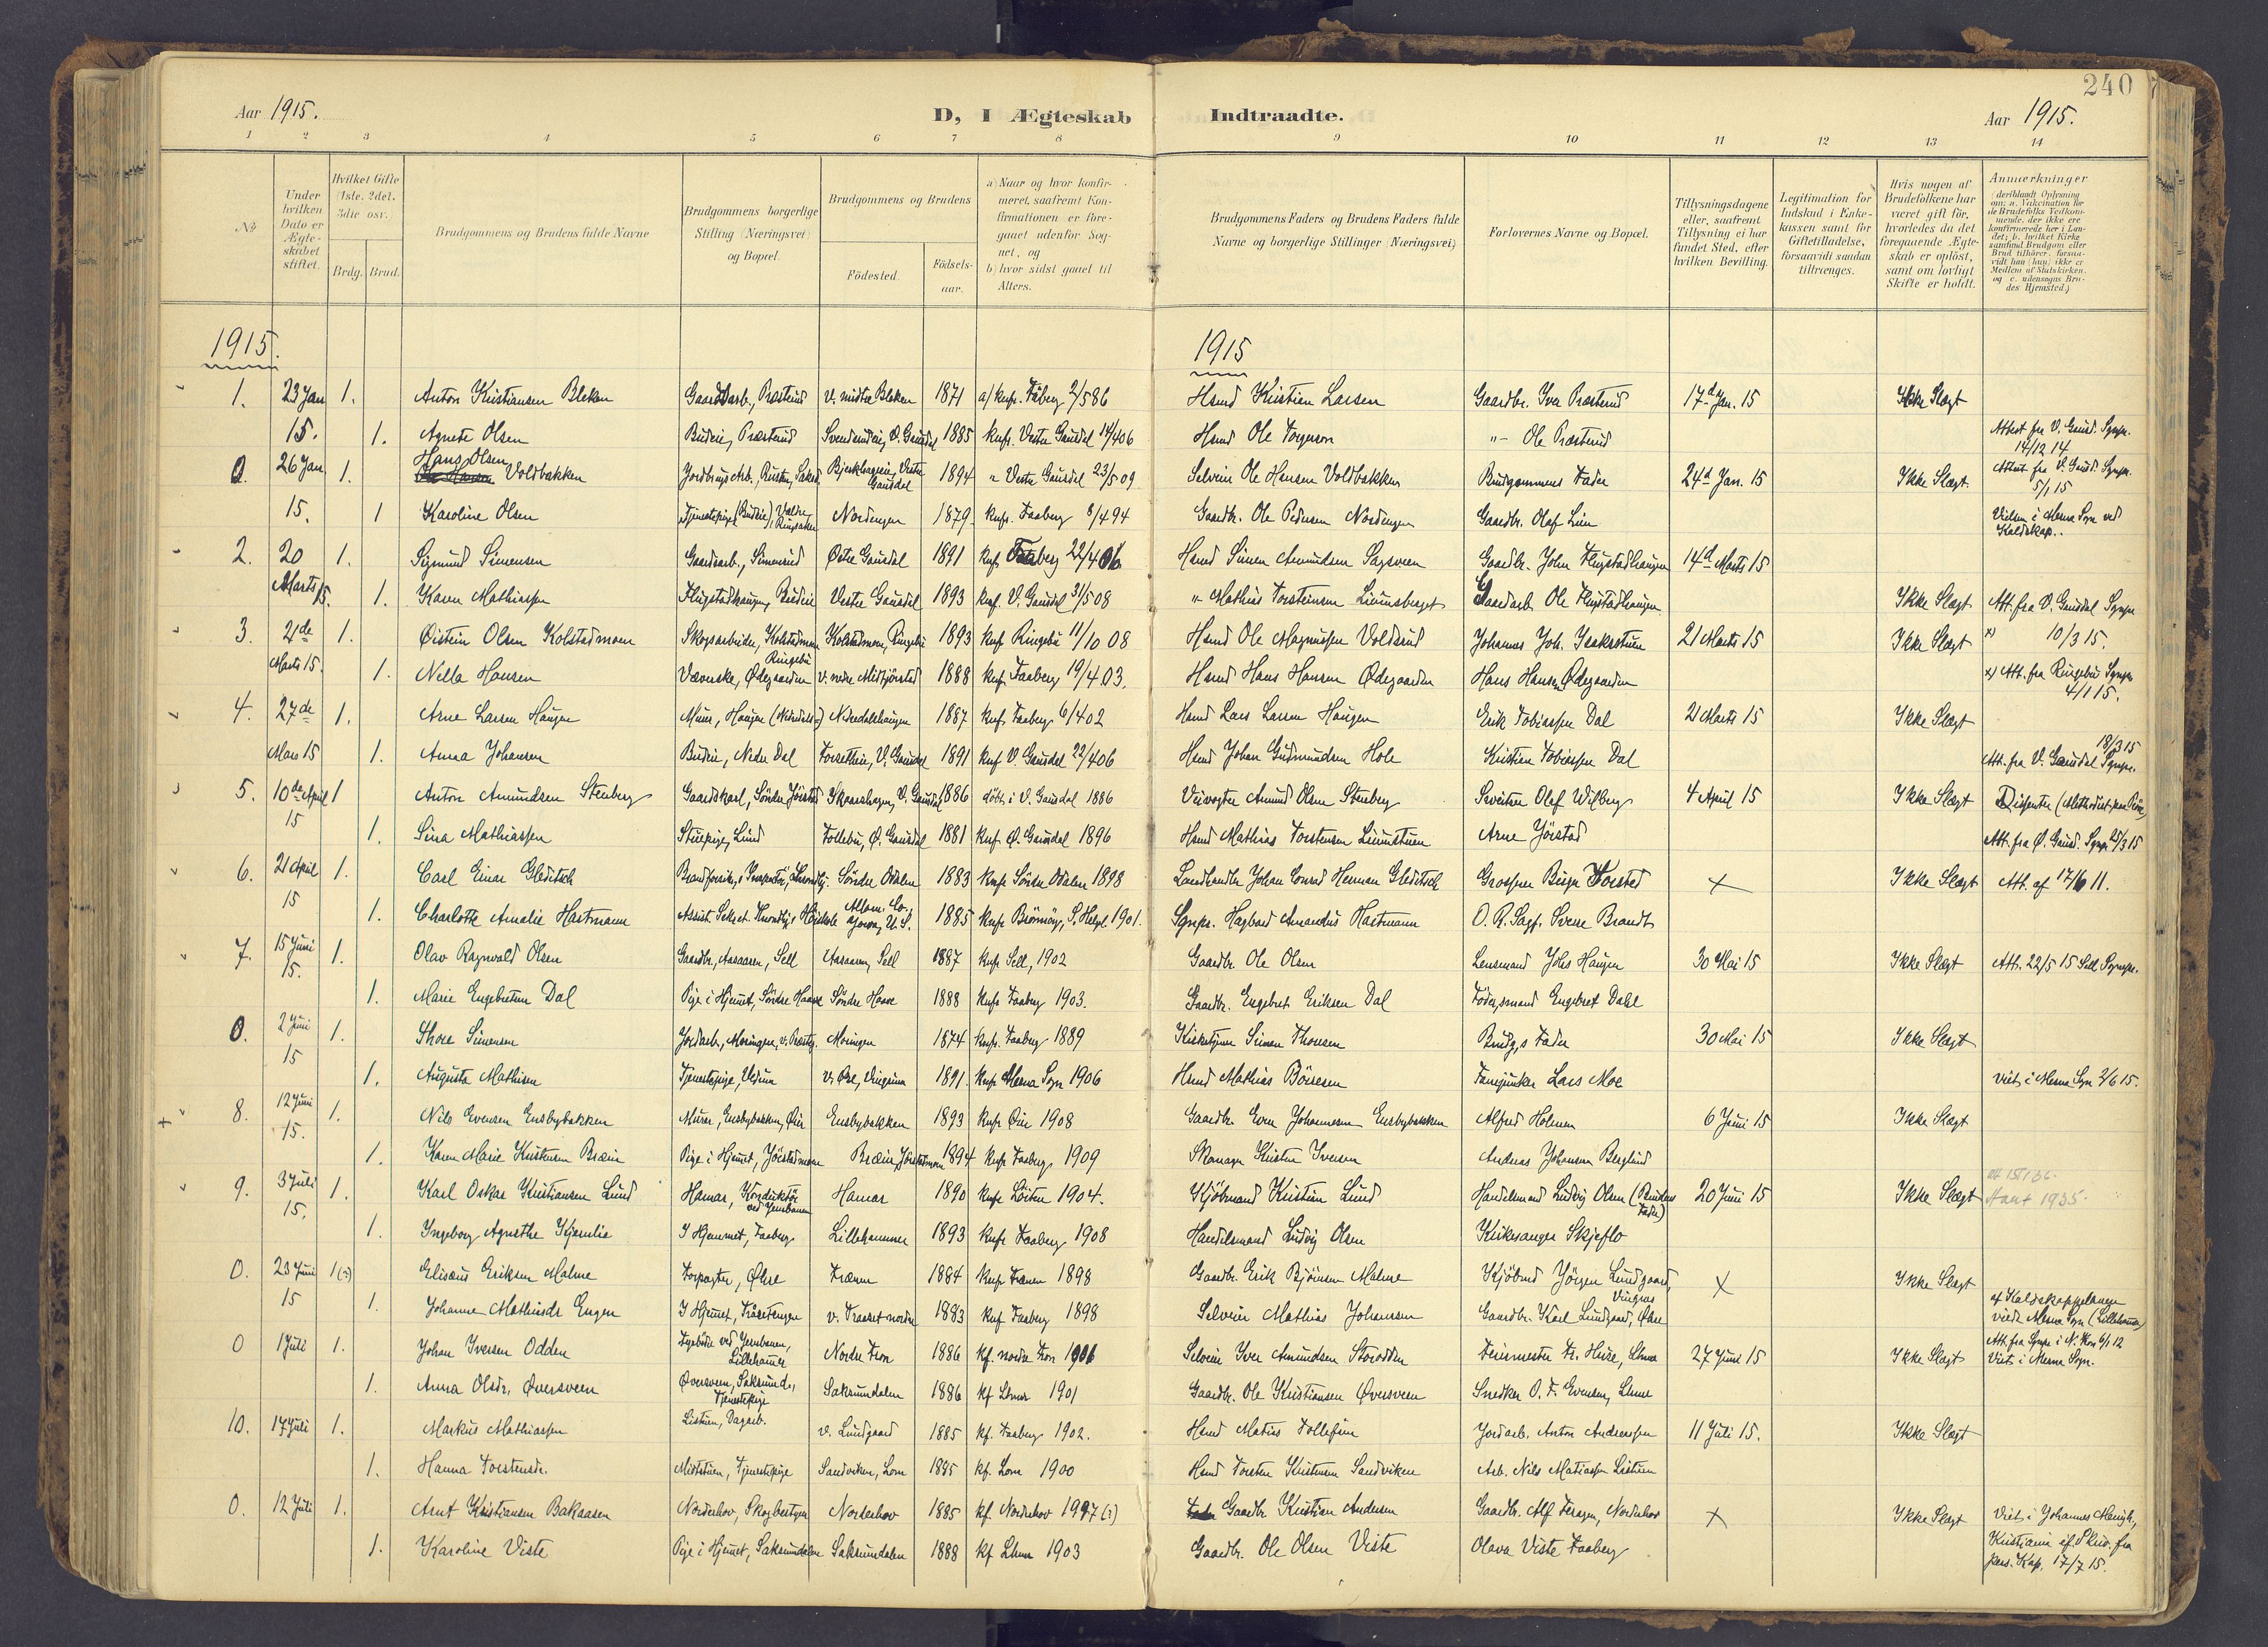 240
Aar 1915.
D, I Ægteskab Indtraadte.
Aar 1915.
1 2 3 4 5 6 7 8 9 10 11 12 13 14
No.
Under hvilken Dato er Ægteskabet stiftet.
Hvilket Gifte (1ste, 2det, 3die osv.)
Brdg. Brud.
Brudgommens og Brudens fulde Navne
Brudgommens borgerlige Stilling (Næringsvei) og Bopæl.
Brudgommens og Brudens
Födested. Födselsaar.
a) Naar og hvor konfirmeret, saafremt Konfirmationen er foregaaet udenfor Sognet, og
b) hvor sidst gaaet til Alters.
Brudgommens Faders og Brudens Faders fulde Navne og borgerlige Stillinger (Næringsvei)
Forlovernes Navne og Bopæl.
Tillysningsdagene eller, saafremt Tillysning ei har fundet Sted, efter hvilken Bevilling.
Legitimation for Indskud i Enkekassen samt for Giftetilladelse, forsaavidt saadan tiltrænges.
Hvis nogen af Brudefolkene har været gift för, hvorledes da det foregaaende Ægteskab er oplöst, samt om lovligt Skifte er holdt.
Anmerkninger
1915. 1915
1. 23 Jan 1. Anton Kristiansen Bleken Gaardsarb., Præsterud v. midtre Bleken 1871 a/ knf. Fåberg 2/5 86 Hsmd Kristian Larsen Gaardbr. Iver Præsterud 17d Jan. 15 Ikke Slægt
15. 1. Agnete Olsen Budeie, Præsterud 1885 knf. Vestre Gausdal 14/4 06 Hsmd Ole Torgerson "- Ole Præsterud Attest fra V. Gausd. Sgnpr. 14/12 14
0. 26 Jan 1. Hans Olsen Voldbakken 1894 " Vestre Gausdal 23/5 09 Selveier Ole Hansen Voldbakken Brudgommens Fader 24d Jan. 15 Ikke Slægt. Attest fra V. Gausd. Sgnpr. 5/1 15
15. 1 Karoline Olsen Nordengen 1879. knf. Faaberg 8/4 94 Gaardbr. Ole Pedersen Nordengen Gaardbr. Olaf Lien Vielsen i Mesna Sgn ved Kaldskap..
2. 20 1. Sigmund Simensen Gaardsarb., Simenrud Østre Gausdal 1891 knf. Faaberg 22/4 06 Hsmd Simen Amundsen Sagsveen Gaardbr. John Flugstadhaugen 14d Marts 15
Marts 15. 1. Karen Mathiassen Flugstadhaugen, Budeie Vestre Gausdal 1893 knf. V. Gausdal 31/5 08 "- Mathias Torsteinsen Gaardarb. Ole Flugstadhaugen Ikke Slægt Att. fra V. Gausdal Sgnpr
3. 21de 1. Øistein Olsen Kolstadmoen Skogsarbeider, Kolstadmoen Ringebu Kolstadmoen, Ringebu 1893 knf Ringebu 11/10 08 Hsmd Ole Magnussen Voldsrud Johannes Joh. Isaksstuen 21 Marts 15 Ikke Slægt x) 10/3 15.
Marts 15. 1. Nella Hansen Væverske, Ødegaarden 1888 knf. Faaberg 19/4 03. Hsmd Hans Hansen Ødegaarden Hans Hansen Ødegaarden x) Att. fra Ringebu Sgnpr 4/1 15.
4. 27de 1. Arne Larsen Haugen 1887 knf. Faaberg 6/4 02 Hsmd Lars Larsen Haugen Erik Tobiassen Dal 21 Marts 15 Ikke Slægt
Mars 15 1. Anna Johansen Budeie, Nedre Dal 1891 knf V. Gausdal 22/4 06 Hsmd Johan Gudmundsen Hole Kristian Tobiassen Dal 18/3 15 Att. fra V. Gausdal Sgnpr.
5. 10de April 1 Anton Amundsen Stenberg Gaardskarl, Söndre Jörstad 1886 döbt i V. Gausdal 1886 Veivogter Amund Olsen Stenberg Sveitser Olaf Wilberg 4 April 15 Ikke Slægt Dissenter
15 1. Sina Mathiassen Stuepige, Lund Follebu, Ø. Gausdal 1881 knf Ø. Gausdal 1896 Hsmd Mathias Torstensen Arne Jörstad Att. fra Ø. Gausd. Sgnpr. 25/3 15
6. 21 April 1. Carl Einar Gleditsch Söndre Odalen 1883 knf. Söndre Odalen 1898 Landhandler Johan Conrad Herman Gleditsch Grosserer Birger Torsted × Ikke Slægt Att. af 17/6 11.
15 1. Charlotte Amalie Hartmann 1885 knf. Brönnöy, S. Helgl. 1901. Sgnpr. Hagbard Amandus Hartmann O. R. Sagf. Sverre Brandt
7. 15 Juni 1. Olav Ragnvald Olsen Gaardbr., Aasaaren, Sell Aasaaren, Sell 1887 knf. Sell, 1902 Gaardbr. Ole Olsen Lensmand Johs Haugen 30 Mai 15 Ikke Slægt Att. 22/5 15 Sell Sgnepr.
15. 1. Marie Engebretsen Dal Pige i Hjemet, Söndre Haave Söndre Haave 1888 knf. Faaberg 1903. Gaardbr. Engebret Eriksen Dal Födergsmand Engebret Dahl
0. 2 Juni 1. Thore Simensen Moringen 1874 knf. Faaberg 1889 Kirketjener Simen Thoresen Brudg.s Fader 30 Mai 15 Ikke Slægt
15 1. Augusta Mathisen 1891. knf. Mesna Sgn 1906 Hsmd Mathias Börresen Fanejunker Lars Moe viet i Mesna Sgn 2/6 15.
+ 8. 12 Juni 1. Nils Evensen Ensbybakken Murer, Ensbybakken, Øier Ensbybakken 1893 knf. Øier 1908 Gaardbr. Even Johannesen Ensbybakken Alfred Holmen 6 Juni 15 Ikke Slægt
15. 1. Karen Marie Kristensen Bræin Pige i Hjemet, Jörstadmoen Bræin, Jörstadmoen 1894 knf. Faaberg 1909 Skomager Kristen Iversen Andreas Johansen Berglund
9. 3 Juli 1. Karl Oskar Kristiansen Lund Hamar, Konduktör ved Jernbanen Hamar 1890 knf. Löiten 1904. Kjöbmand Kristian Lund Handelsmand Ludvig Olsen (Brudens Fader) 20 Juni 15 Ikke Slægt
15. 1. Ingeborg Agnethe Kjernlie I Hjemmet, Faaberg Lillehammer 1893 knf. Faaberg 1908 Handelsmand Ludvig Olsen Kirkesanger Skjeflo
0. 23 Juni 1(?) Elisæus Eriksen Malme Forpagter, Øhre Frænen 1884 knf. Frænen 1898 Gaardbr. Erik Björnsen Malme Kjöbmd Jörgen Lundgaard, Vingnes × Ikke Slægt
15 1. Johanne Mathiesdr Engen 1883 knf Faaberg 1898 Selveier Mathias Johansen Gaardbr. Karl Lundgaard, Øhre af Kaldskappelanen viede Mesna Sgn (Lillehammer)
0 1 Juli 1. Johan Iversen Odden Nordre Fron 1886 kf. nordre Fron 1906 Selveier Iver Amundsen Storodden Feiermester Fr. Huse, Lhmr 27 Juni 15 Ikke Slægt Viet i Mesna Sgn.
1. Anna Olsdr. Øversveen Øversveen, Saksumd., Tjenestepige Saksumdalen 1886 kf Lhmr 1901 Gaardbr. Ole Kristiansen Øversveen Snedker O. F. Evensen, Lhmr
10. 17 Juli 1. Markus Mathiassen Listuen, Dagarb. v. Lundgaard 1885 kf. Faaberg 1902. Hsmd Matias Tollefsen Jordarb. Anton Andreassen 11 Juli 15. Ikke Slægt
1. Hanna Torstensdr. Midtstuen, Tjenestepige Sandviken, Lom 1885 kf. Lom 1900 Hsmd Torsten Kristensen Sandviken Arb. Nils Matiassen Listuen
0. 12 Juli 1. Arnt Kristiansen Bakaasen Norderhov, Skogbestyrer Norderhov 1885 kf. Norderhov 1997 (?) Gaardbr. Kristian Andersen Gaardbr. Alf Fersgen, Norderhov × Ikke Slægt Viet i Johannes Menigh.,
1. Karoline Viste Pige i Hjemet, Saksumdalen Saksumdalen 1888 kf Lhmr 1903 Gaardbr. Ole Olsen Viste Olava Viste Faaberg Kristiania if. Skriv. fra pers. Kap. 17/7 15.